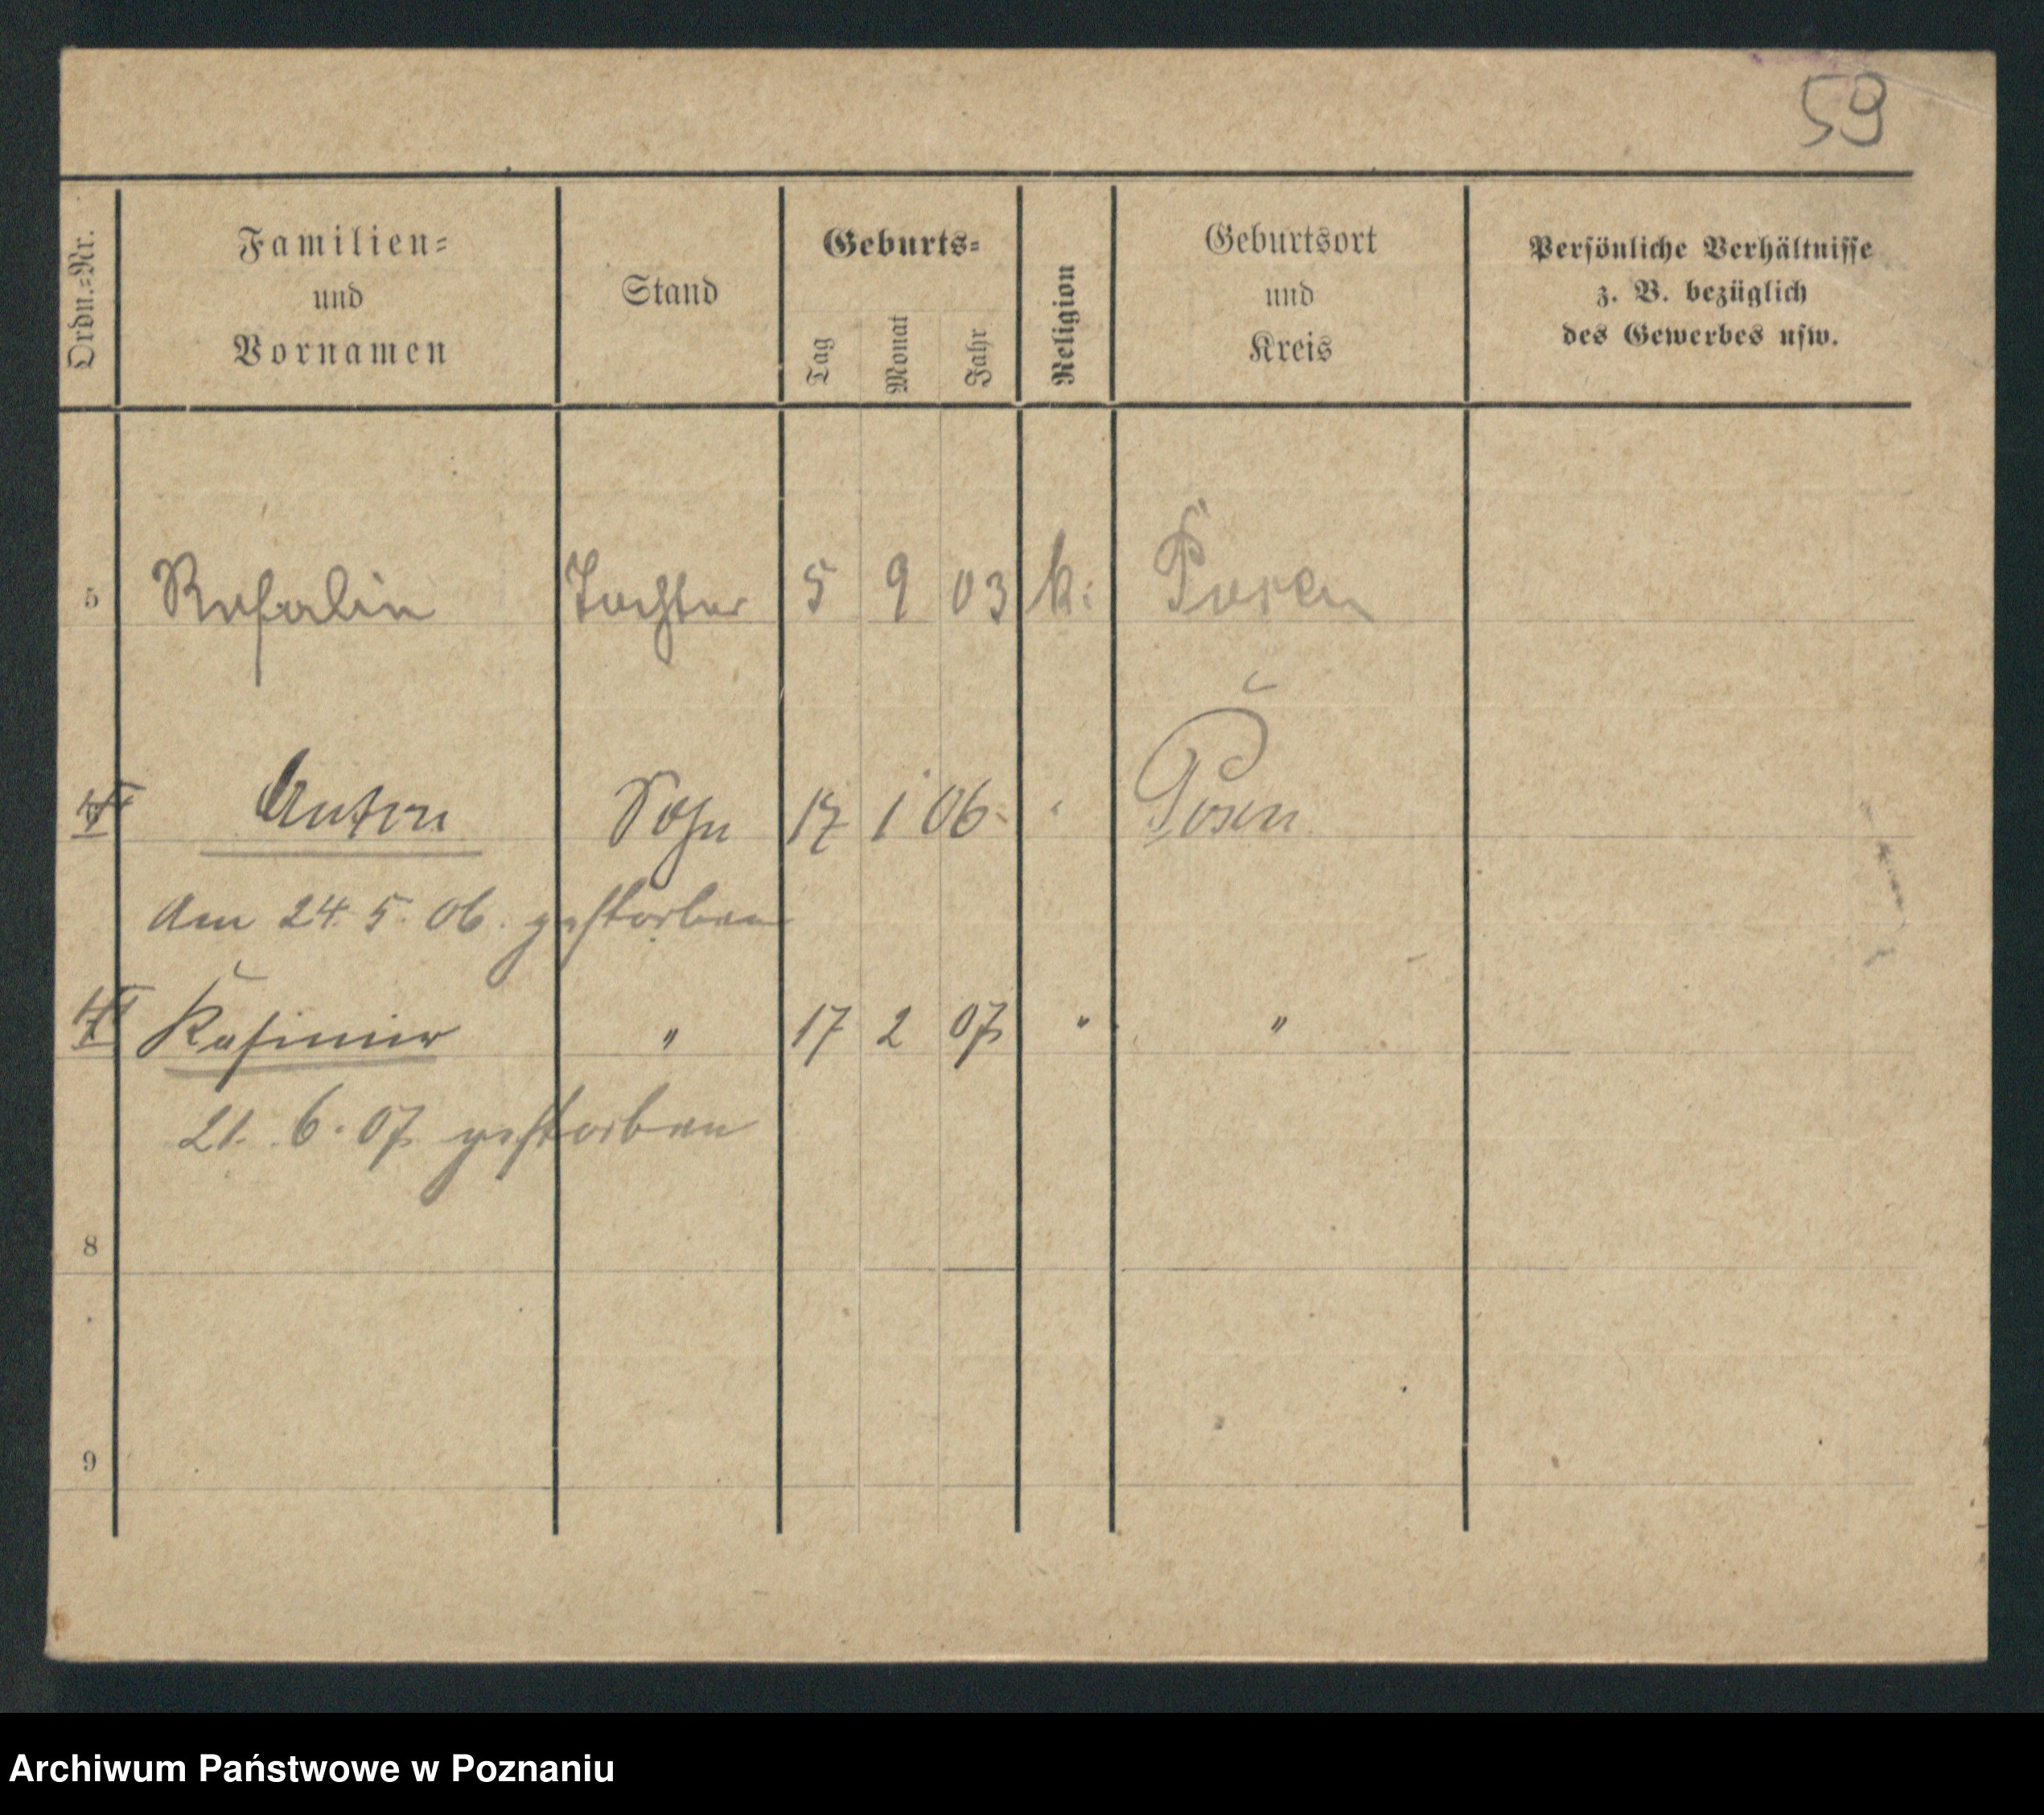 59
Ordn.=Nr.
Familien=
und
Vornamen
Stand
Geburts=
Tag
Monat
Jahr
Religion
Geburtsort
und
Kreis
Persönliche Verhältnisse
z. B. bezüglich
des Gewerbes usw.
5 Rosalie Tochter 5 9 03 k. Posen
Anton Sohn 17 1 06 " Posen
am 24. 5. 06. gestorben
Kasimir " 17 2 07 " "
21. 6. 07 gestorben
8
9
Archiwum Państwowe w Poznaniu